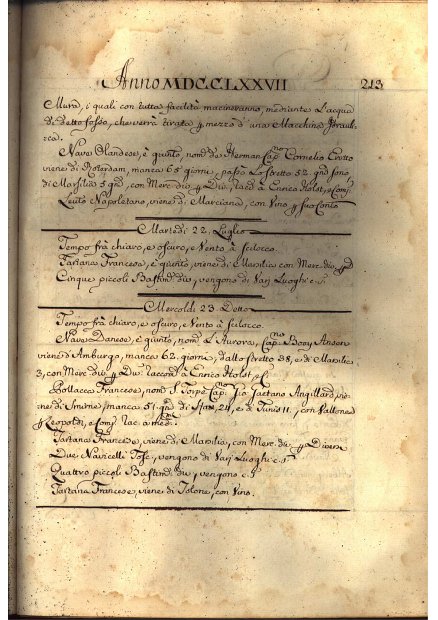 Anno MDCCLXXVII 213
Mura, i quali con tutta facilità macineranno, mediante L'acqua
di detto fosso, che verrà tirata p mezzo d'una Macchina Idraulica.
Nave Olandese, è giunto, nom. de Herman Cap.no Cornelio
viene di Roterdam, manca 65 giorni, passò Lo Stretto 32. gni sono
di Marsilia 5 gni con Merc. div. p Div. racc. à Enrico Holst, e Comp.
Leuto Napoletano, viene di Marciana, con Vino p suo Conto
Martedi 22. Luglio
Tempo frà chiaro, e oscuro, e Vento à scilocco.
Tartana Francese, è giunto, viene di Marsilia con Merc. div. p
Cinque piccoli Bastim. div. vengono di Varj Luoghi c. s.
Mercoldi 23. Detto
Tempo frà chiaro, e oscuro, e Vento à scilocco.
Nave Danese, è giunto, nom. L'Aurora, Cap.no Booy Anson
viene d'Amburgo, manca 62. giorni, dallo stretto 38, e di Marsilia
3, con Merc. div. p Div. raccom. à Enrico Holst, e C.
Pollacca Francese, nom. S. Torpè Cap.no Gio. Gaetano Angillard, vie-
ne di Smirne, manca 51. gni di 24, e di Tunis 11., con Vallonea
p Leopoldi, e Comp. rac. a med.
Tartana Francese, viene di Marsilia, con Merc. div. p Diversi
Due Navicelli Tosc. vengono di Varj Luoghi c. s.
Quattro piccoli Bastim. div. vengono c. s.
Tartana Francese, viene di Tolone, con Vino.